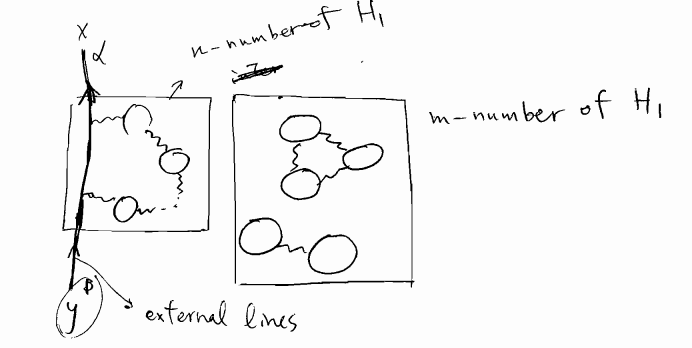 n-number of H1
x
α
m-number of H1
β
y
external lines